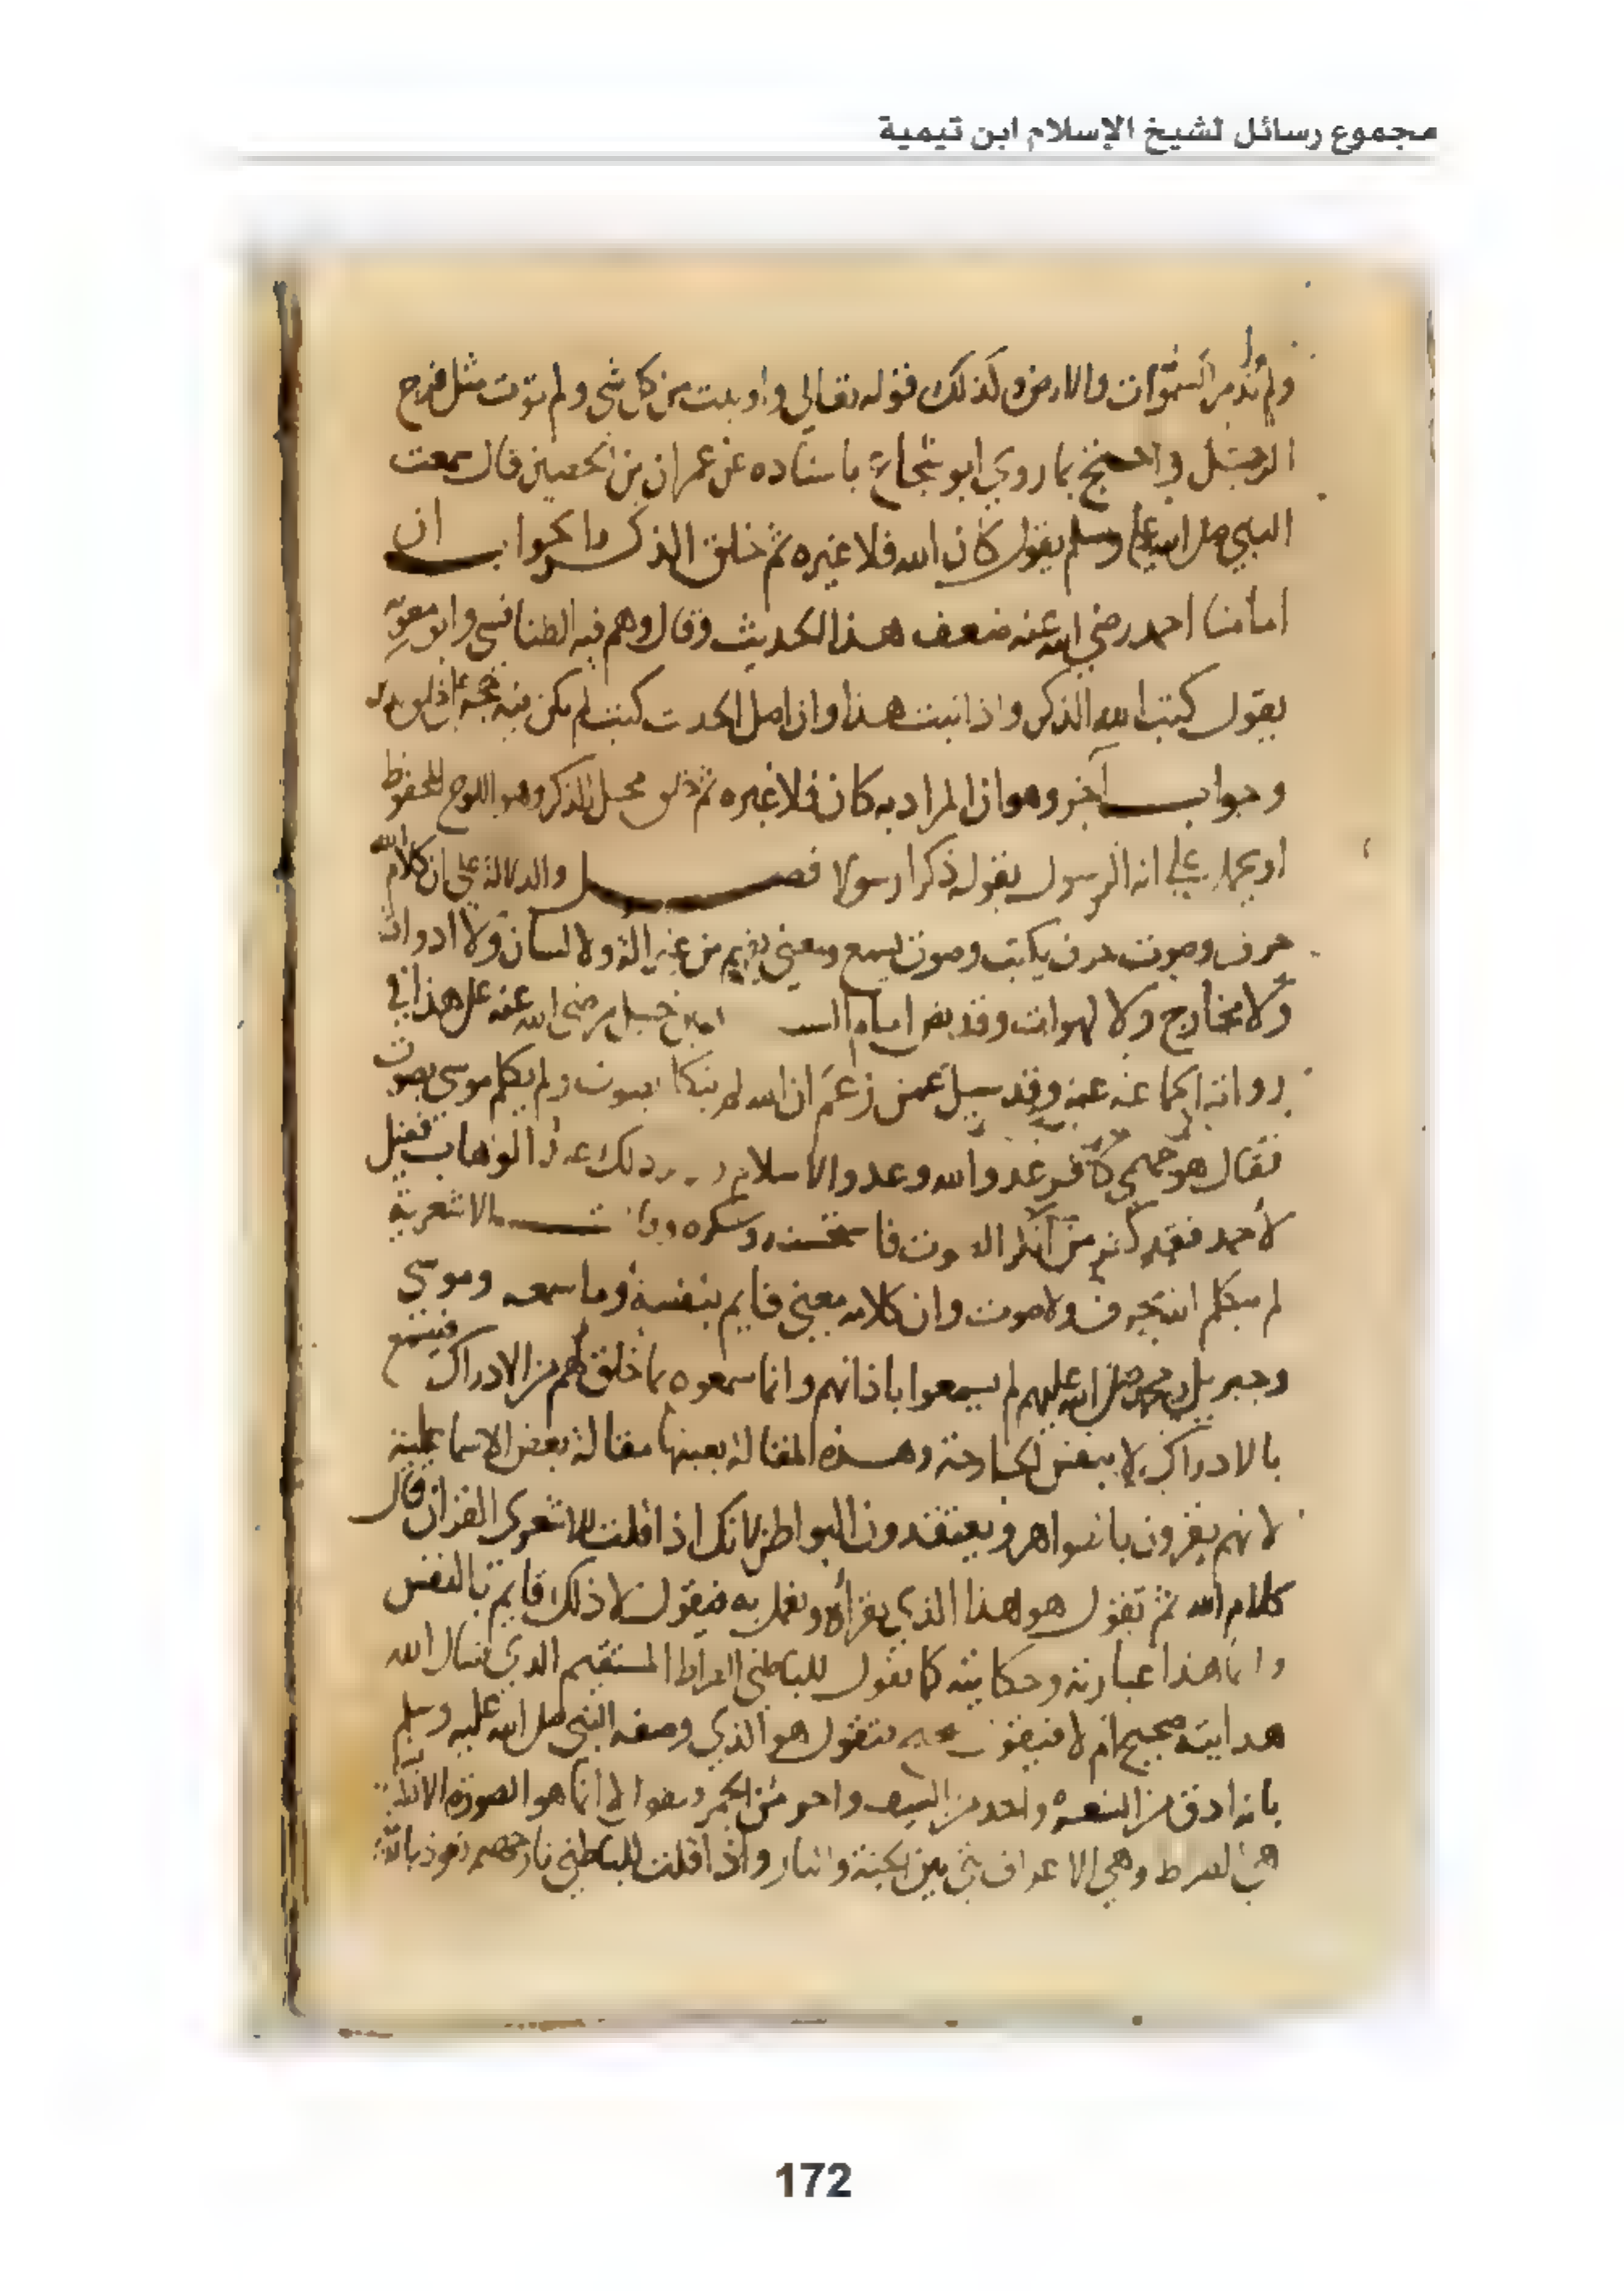 مجموع رسائل لشيخ الإسلام ابن تيمية
ولم تدمر السموات والارض وكذلك قوله تعالى واوتيت من كل شي ولم توت مثل فرج
الرجل واحتج بما روي ابو شجاع باسناده عن عمران بن الحصين قال سمعت
النبي صلى الله عليه وسلم يقول كان الله فلا غيره ثم خلق الذكر والجواب ان
امامنا احمد رضي الله عنه ضعف هذا الحديث وقال وهم فيه الطنافسي وابو معوية
يقول كتب الله الذكر واذا ثبت هذا وان اصل الحديث كتب لم يكن فيه حجة
وجواب آخر وهو ان المراد به كان فلا غيره ثم خلق محل الذكر وهو اللوح المحفوظ
او يحمل على انه الرسول بقوله ذكرا رسولا فصل والدلالة على ان كلام الله
حرف وصوت حرف يكتب وصوت يسمع ومعنى يفهم من غير الة ولا لسان ولا ادوات
ولا مخارج ولا لهوات وقد نص امام السنة حنبل رضي الله عنه على هذا في
رواية الجماعة عنه وقد سيل عمن زعم ان الله لم يتكلم بصوت ولم يكلم موسى بصوت
فقال هو جهمي كافر عدو الله وعدو الاسلام ذلك الوهاب فقيل
لاحمد فقد كفر من انكر الصوت فاستحسنه وشكره وقالت الاشعرية
لم يتكلم الله بحرف ولا صوت وان كلامه معنى قايم بنفسه وما سمعه وموسى
وجبريل ومحمد صلى الله عليهم لم يسمعوا باذانهم وانما سمعوه بما خلق لهم من الادراك فيسمع
بالادراك لا بنفس الجارحة وهذه المقالة بعينها مقالة بعض الاسماعيلية
لانهم يقرون بالظواهر ويعتقدون البواطن لانك اذا قلت للاشعري القران قال
كلام الله ثم تقول هو هذا الذي يقرأ ويعمل به فيقول لا ذلك قايم بالنفس
وانما هذا عبارته وحكايته كما تقول للباطني الصراط المستقيم الذي نسال الله
هدايته صحيح ام لا فيقول صحيح فتقول هو الذي وصفه النبي صلى الله عليه وسلم
بانه ادق من الشعرة واحد من السيف واحر من الجمر فيقول لا انما هو الصورة الانسانية
هي الصراط وهي الاعراف بين الجنة والنار واذا قلت للباطني نار جهنم نعوذ بالله
172